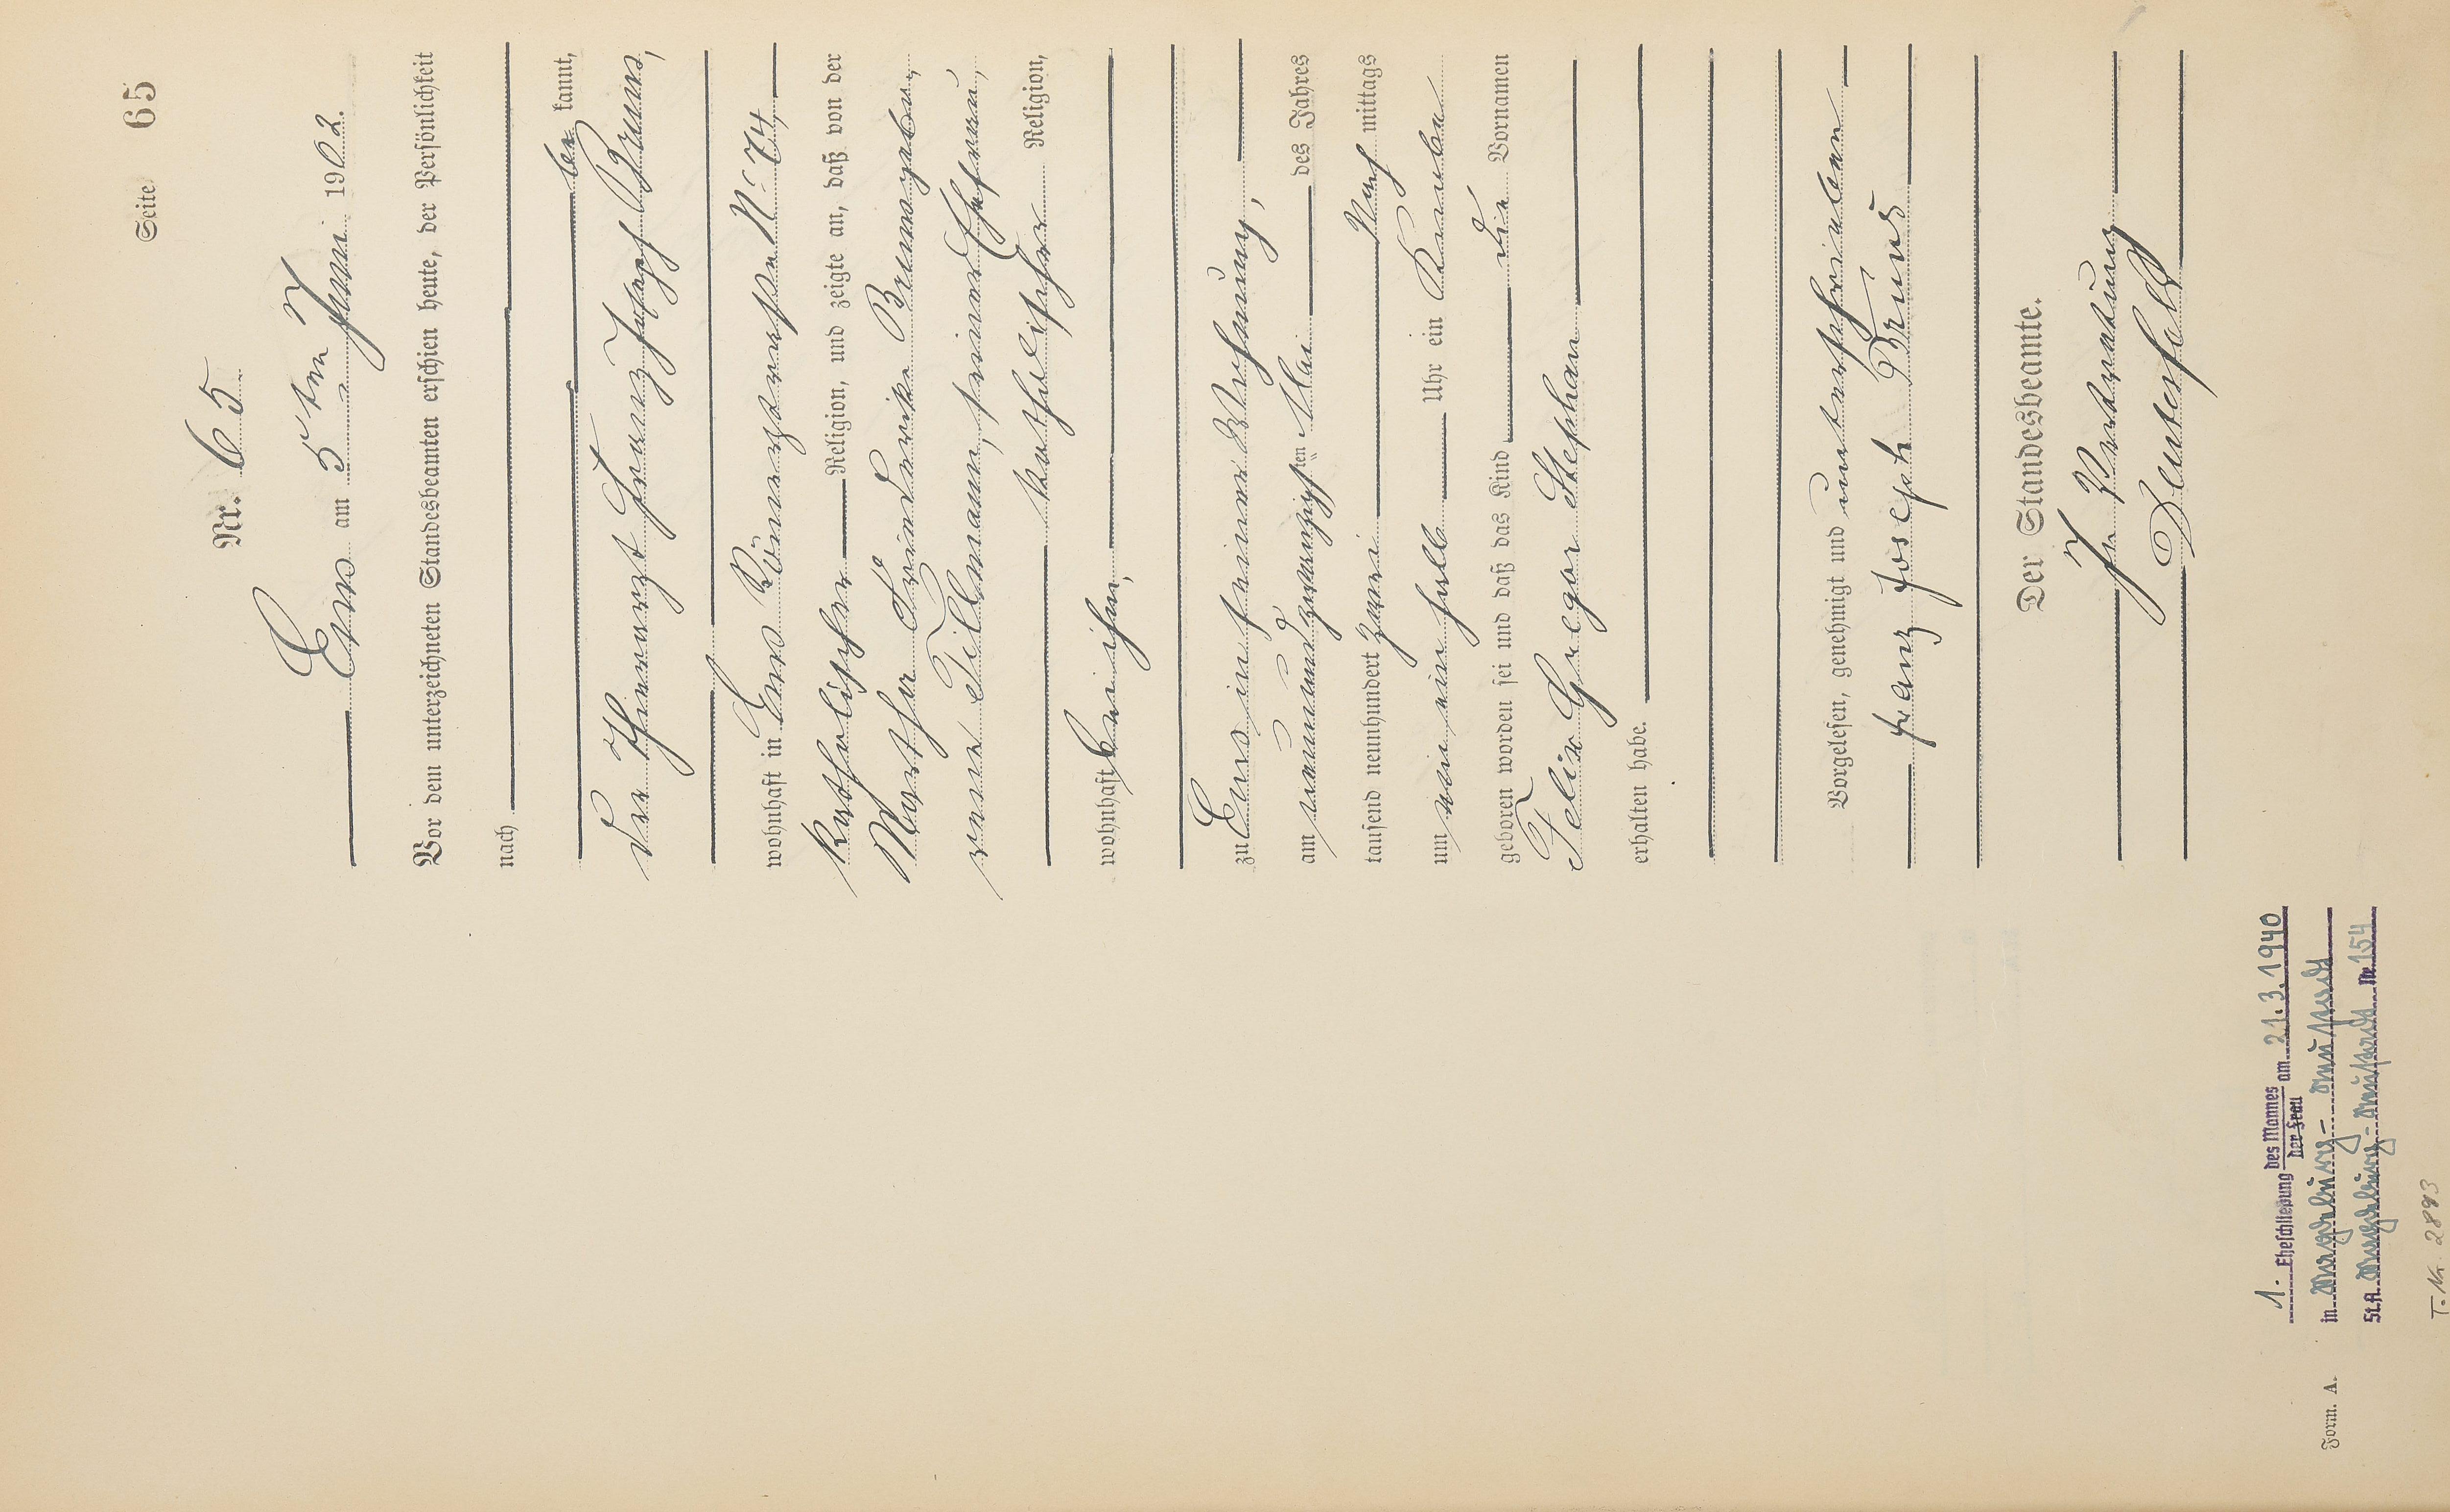 Seite 65
Nr. 65
Ems am 5 ten Juni 1902.
Vor dem unterzeichneten Standesbeamten erschien heute, der Persönlichkeit
nach
be kannt,
der Thierarzt Franz Joseph Bruns,
wohnhaft in Ems Römerstraße No 74,
katholischer Religion, und zeigte an, daß von der
Martha Friederike Bruns geborenen
Tillmann, seiner Ehefrau,
katholischer Religion,
wohnhaft bei ihm,
zu Ems in seiner Wohnung,
am neunundzwanzigsten Mai des Jahres
tausend neunhundert zwei Nach mittags
um ein halb Uhr ein Knabe
geboren worden sei und daß das Kind die Vornamen
Felix Gregor Stephan
erhalten habe.
Vorgelesen, genehmigt und unterschrieben
Franz Joseph Bruns
Der Standesbeamte.
In Vertretung
1. Eheschließung des Mannes am 21.3.1940
der Frau
in Magdeburg-Neustadt
St.A. Magdeburg-Neustadt Nr. 154
Form. A.
T. Nr. 2893